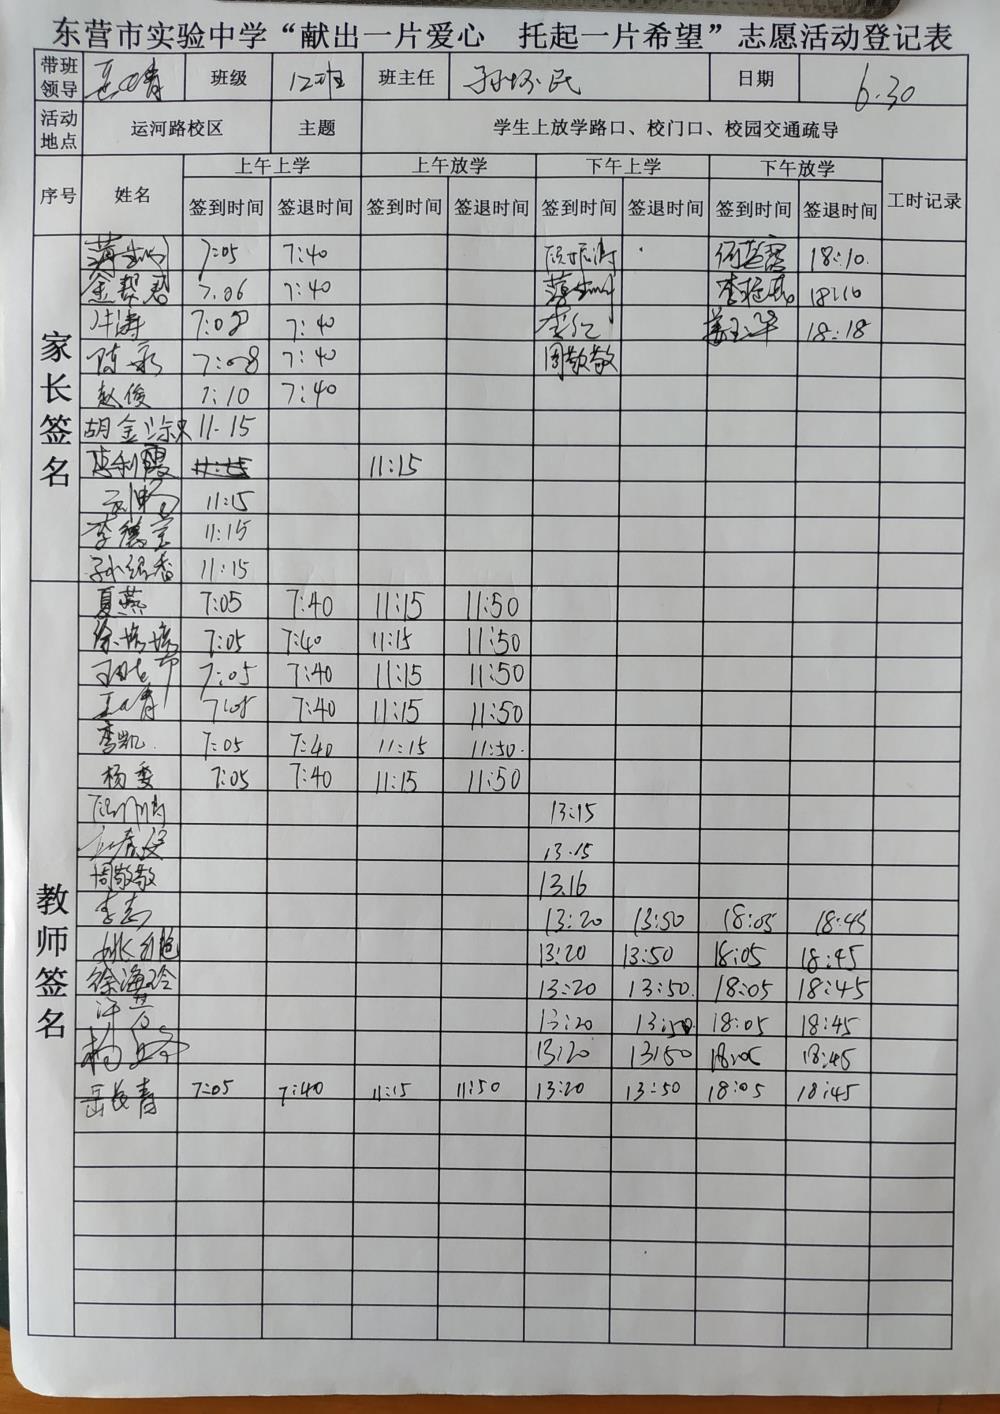 东营市实验中学“献出一片爱心 托起一片希望”志愿活动登记表
带班领导 班级 12班 班主任 日期 6.30
活动地点 运河路校区 主题 学生上放学路口、校门口、校园交通疏导
序号 姓名 上午上学 上午放学 下午上学 下午放学 工时记录
签到时间 签退时间 签到时间 签退时间 签到时间 签退时间 签到时间 签退时间
家长签名
7:05 7:40 18:10
金帮君 7.06 7:40 18:10
牛涛 7:08 7:40 李红 姜玉华 18:18
陈永 7:08 7:40 周敬敬
赵俊 7:10 7:40
胡金 11.15
李利霞 11:15
刘畅 11:15
李德宝 11:15
孙绍香 11:15
教师签名
夏燕 7:05 7:40 11:15 11:50
徐培培 7:05 7:40 11:15 11:50
7:05 7:40 11:15 11:50
7:05 7:40 11:15 11:50
李凯 7:05 7:40 11:15 11:50
杨委 7:05 7:40 11:15 11:50
13:15
13.15
周敬敬 13.16
李涛 13:20 13:50 18:05 18:45
13:20 13:50 18:05 18:45
徐海玲 13:20 13:50 18:05 18:45
13:20 13:50 18:05 18:45
13:20 13:50 18:05 18:45
岳长青 7:05 7:40 11:15 11:50 13:20 13:50 18:05 18:45